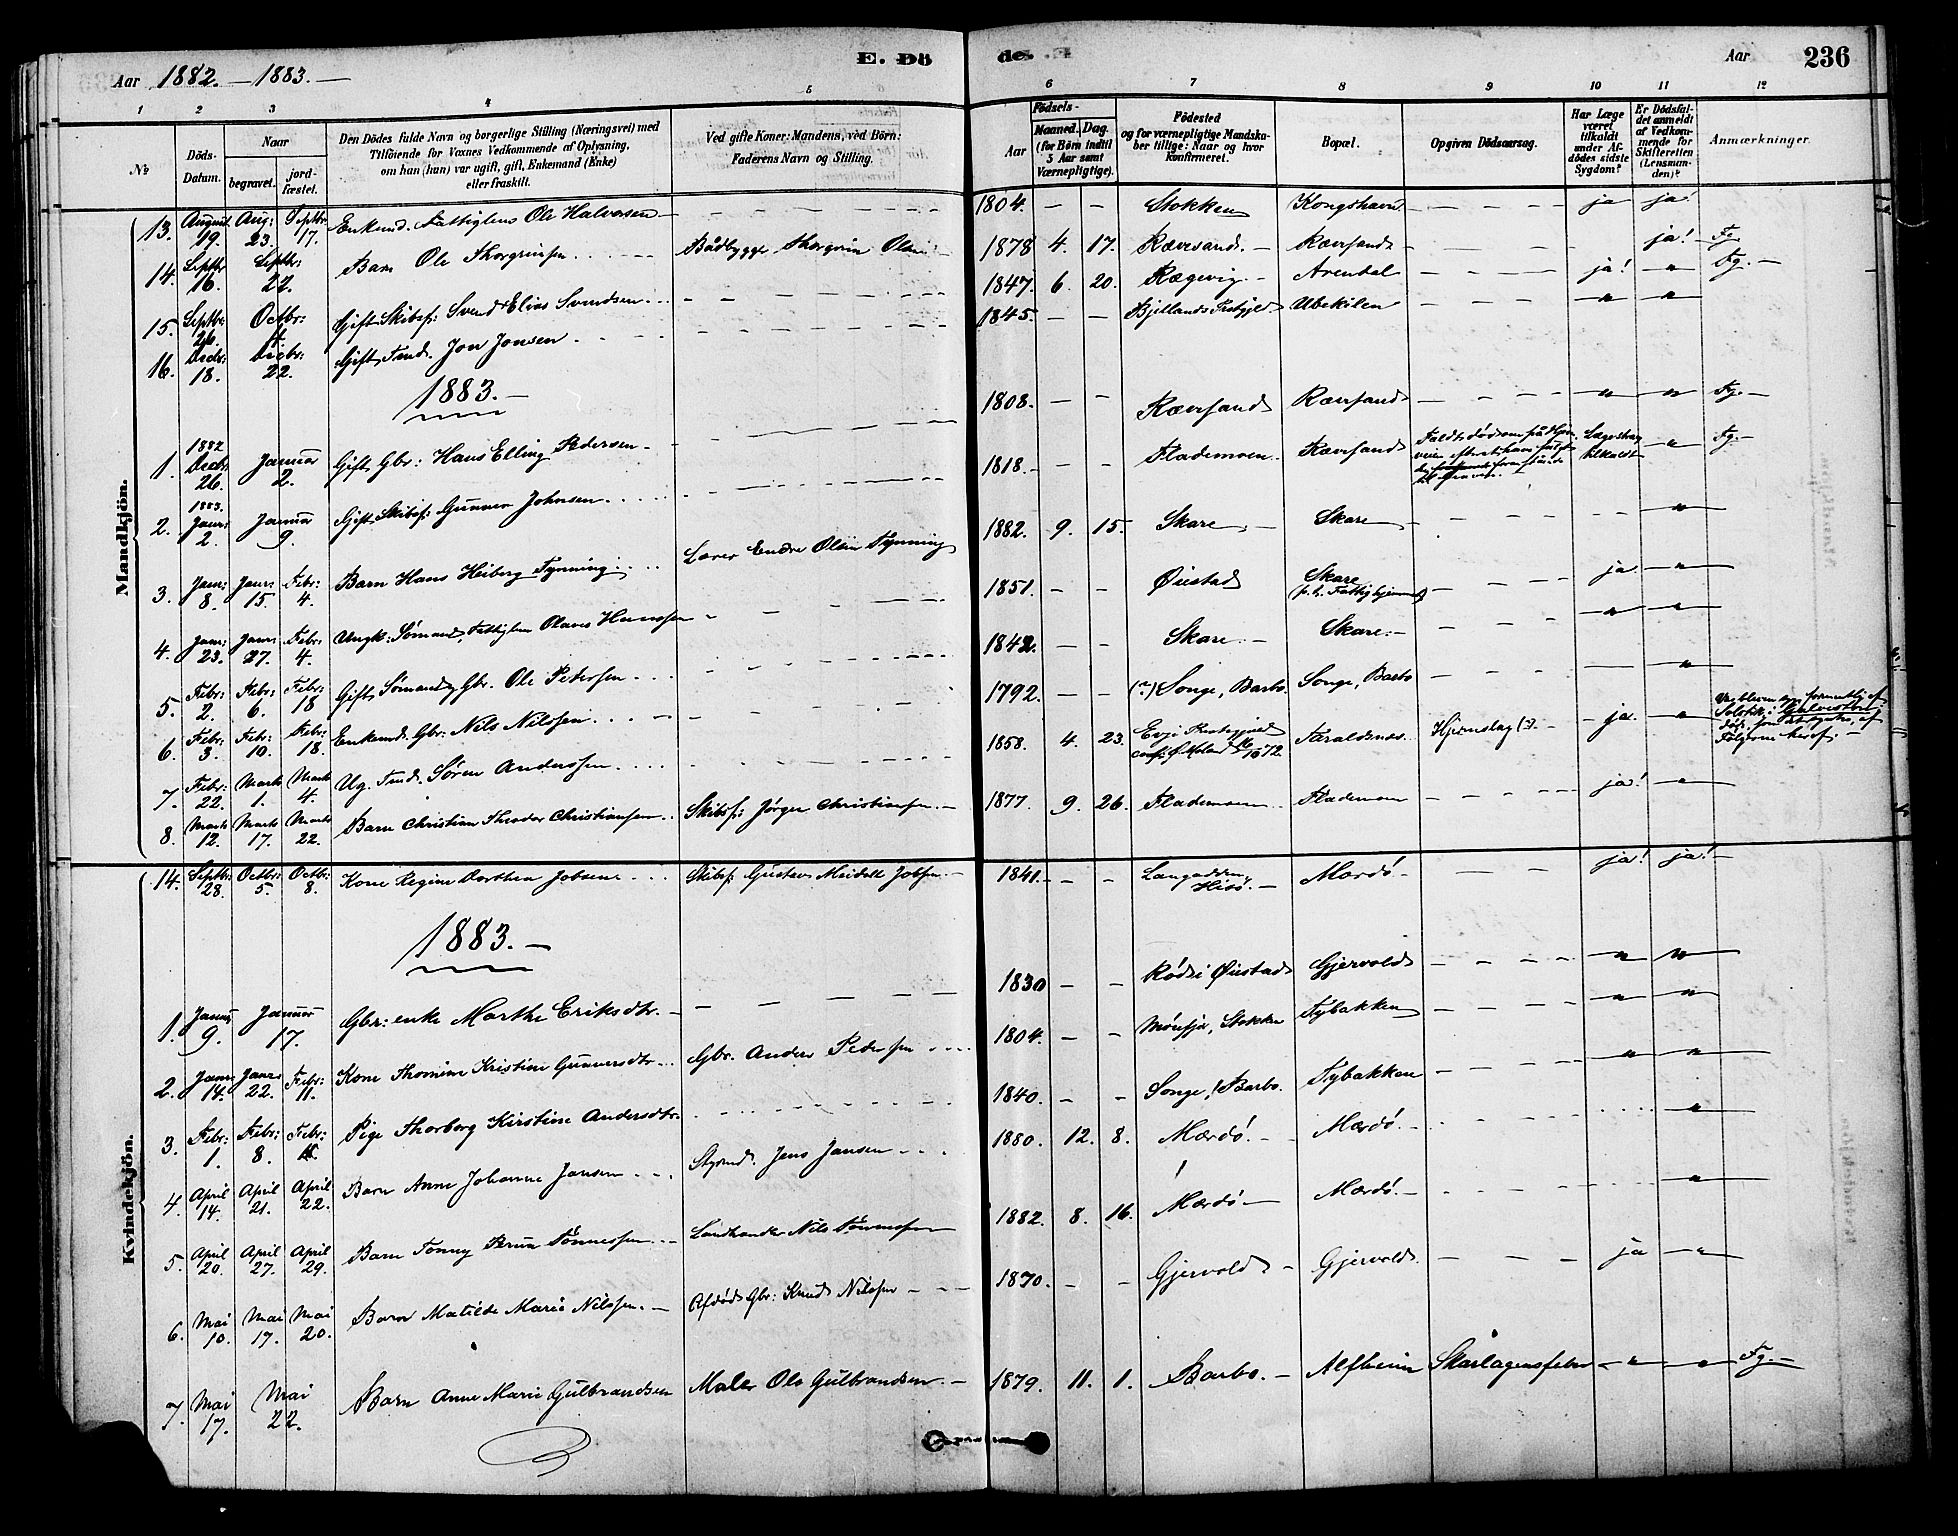 Aar 1882. — 1883. —
E. Dö
de.
Aar
236
1 2 3 4 5 6 7 8 9 10 11 12
No
Döds-Datum.
Naar
begravet.
jordfæstet.
Den Dödes fulde Navn og borgerlige Stilling (Næringsvei) med
Tilföiende for Voxnes Vedkommende af Oplysning,
om han (hun) var ugift, gift, Enkemand (Enke)
eller fraskilt.
Ved gifte Koner: Mandens, ved Börn:
Faderens Navn og Stilling.
Födsels-
Aar
Maaned. Dag.
(for Börn indtil
5 Aar samt
Værnepligtige).
Födested
og for værnepligtige Mandskaber tillige: Naar og hvor
konfirmeret.
Bopæl.
Opgiven Dödsaarsag.
Har Læge
været
tilkaldt
under Afdödes sidste
Sygdom?
Er Dödsfaldet anmeldt
af Vedkommende for
Skifteretten
(Lensmanden)?
Anmærkninger.
Mandkjön.
13. August 19. Aug: 23. Septbr 17. Enkemd. Fattiglem Ole Halvorsen — 1804. — — Stokken Kongshavn — ja ja!
14. Septbr 16. Septbr: 22. Barn Ole Thorgrimsen Bådbygger Thorgrim Olsen 1878 4. 17. Rævesand. — Rævesand — ja! — Fg
15. Septbr: 26. Octbr: 1. Gift Skibsf: Svend Elias Svendsen 1847. 6. 20. Rægevig. — Arendal ja! " Fg. —
16. Decbr: 18. Decbr: 22. Gift Tmd. Jon Jonsen 1845. — — Bjellands Prstgjeld Ubekilen " "
1883. —
1. 1882 Decbr 26. Januar 2. Gift Gbr: Hans Elling Pedersen 1808. — — Rævesand Rævesand " " Fg. —
2. 1883. Janr: 2. Januar 9. Gift Skibsf: Gunner Johnsen 1818. — — Flademoen Rævesand Lægehjælp tilkaldt " Fg. —
3. Janr: 8. Janr: 15. Febr: 4. Barn Hans Heiberg Fynning Lærer Endre Olsen Fynning 1882. 9. 15. Skare — Skare "
4. Janr: 23. Janr: 27. Febr: 4. Ungk: Sømand, Fattiglem Olaves Hansen 1851. — — Øiestad Skare (p. t. Fattighjemmet) ja "
5. Febr: 2. Febr: 6. Febr: 18 Gift Sømand, Gbr. Ole Petersen 1842. — — Skare. — Skare. — " "
6. Febr: 3. Febr: 10. Febr: 18 Enkemd. Gbr: Nils Nilssen 1792. — — (?) Songe, Barbo Songe, Barbo "
7. Febr: 22. Marts 1. Marts 4. Ug. Tmd. Søren Anderssen 1858. 4. 23. Evje Prestegjeld 1872. Taraldsnes Hjerneslag (?) ja. "
8. Marts 12. Marts 17. Marts 22. Barn Christian Theodor Christiansen Skibsf: Jørgen Christiansen 1877. 9. 26. Flademoen Flademoen ja! "
Kvindekjön.
14. Septbr: 28. Octbr: 5. Octbr: 8. Kone Regine Dorthea Jobsen Skibsf: Gustav Meidell Jobsen 1841. — — Langodden, Hisø. — Mærdø ja! ja!
1883. —
1. Januar 9. Januar 17. Gbr: enke Marthe Eriksdtr. — 1830 — — Røds i Øiestad Gjervold " "
2. Janr: 14. Janr: 22. Febr: 11. Kone Thomine Kristine Gunnersdtr. Gbr. Anders Pedersen 1804. — — Stokken Tybakken " "
3. Febr: 1. Febr: 8. Febr: Pige Thorborg Kirstine Andersdtr. 1840. — — Songe, Barbo. Tybakken " "
4. April 14. April 21. April 22. Barn Anne Johanne Jansen Styrmd. Jens Jansen 1880. 12. 8. Mærdø. — Mærdø. — "
5. April 20. April 27. April 29. Barn Tonny Tønnessen Landhandler Nils Tønnessen 1882. 8. 16. Mærdø — Mærdø. — "
6. Mai 10. Mai 17. Mai 20. Barn Matilde Marie Nilssen. — Afdød Gbr: Knud Nilssen 1870. — — Gjervold — Gjervold. ja "
7. Mai 17. Mai 22. Barn Anne Marie Gulbrandsen Maler Ole Gulbrandsen. — 1879. 11. 1. Barbo. — Alfheim Skarlagensfeber " " Fg. —